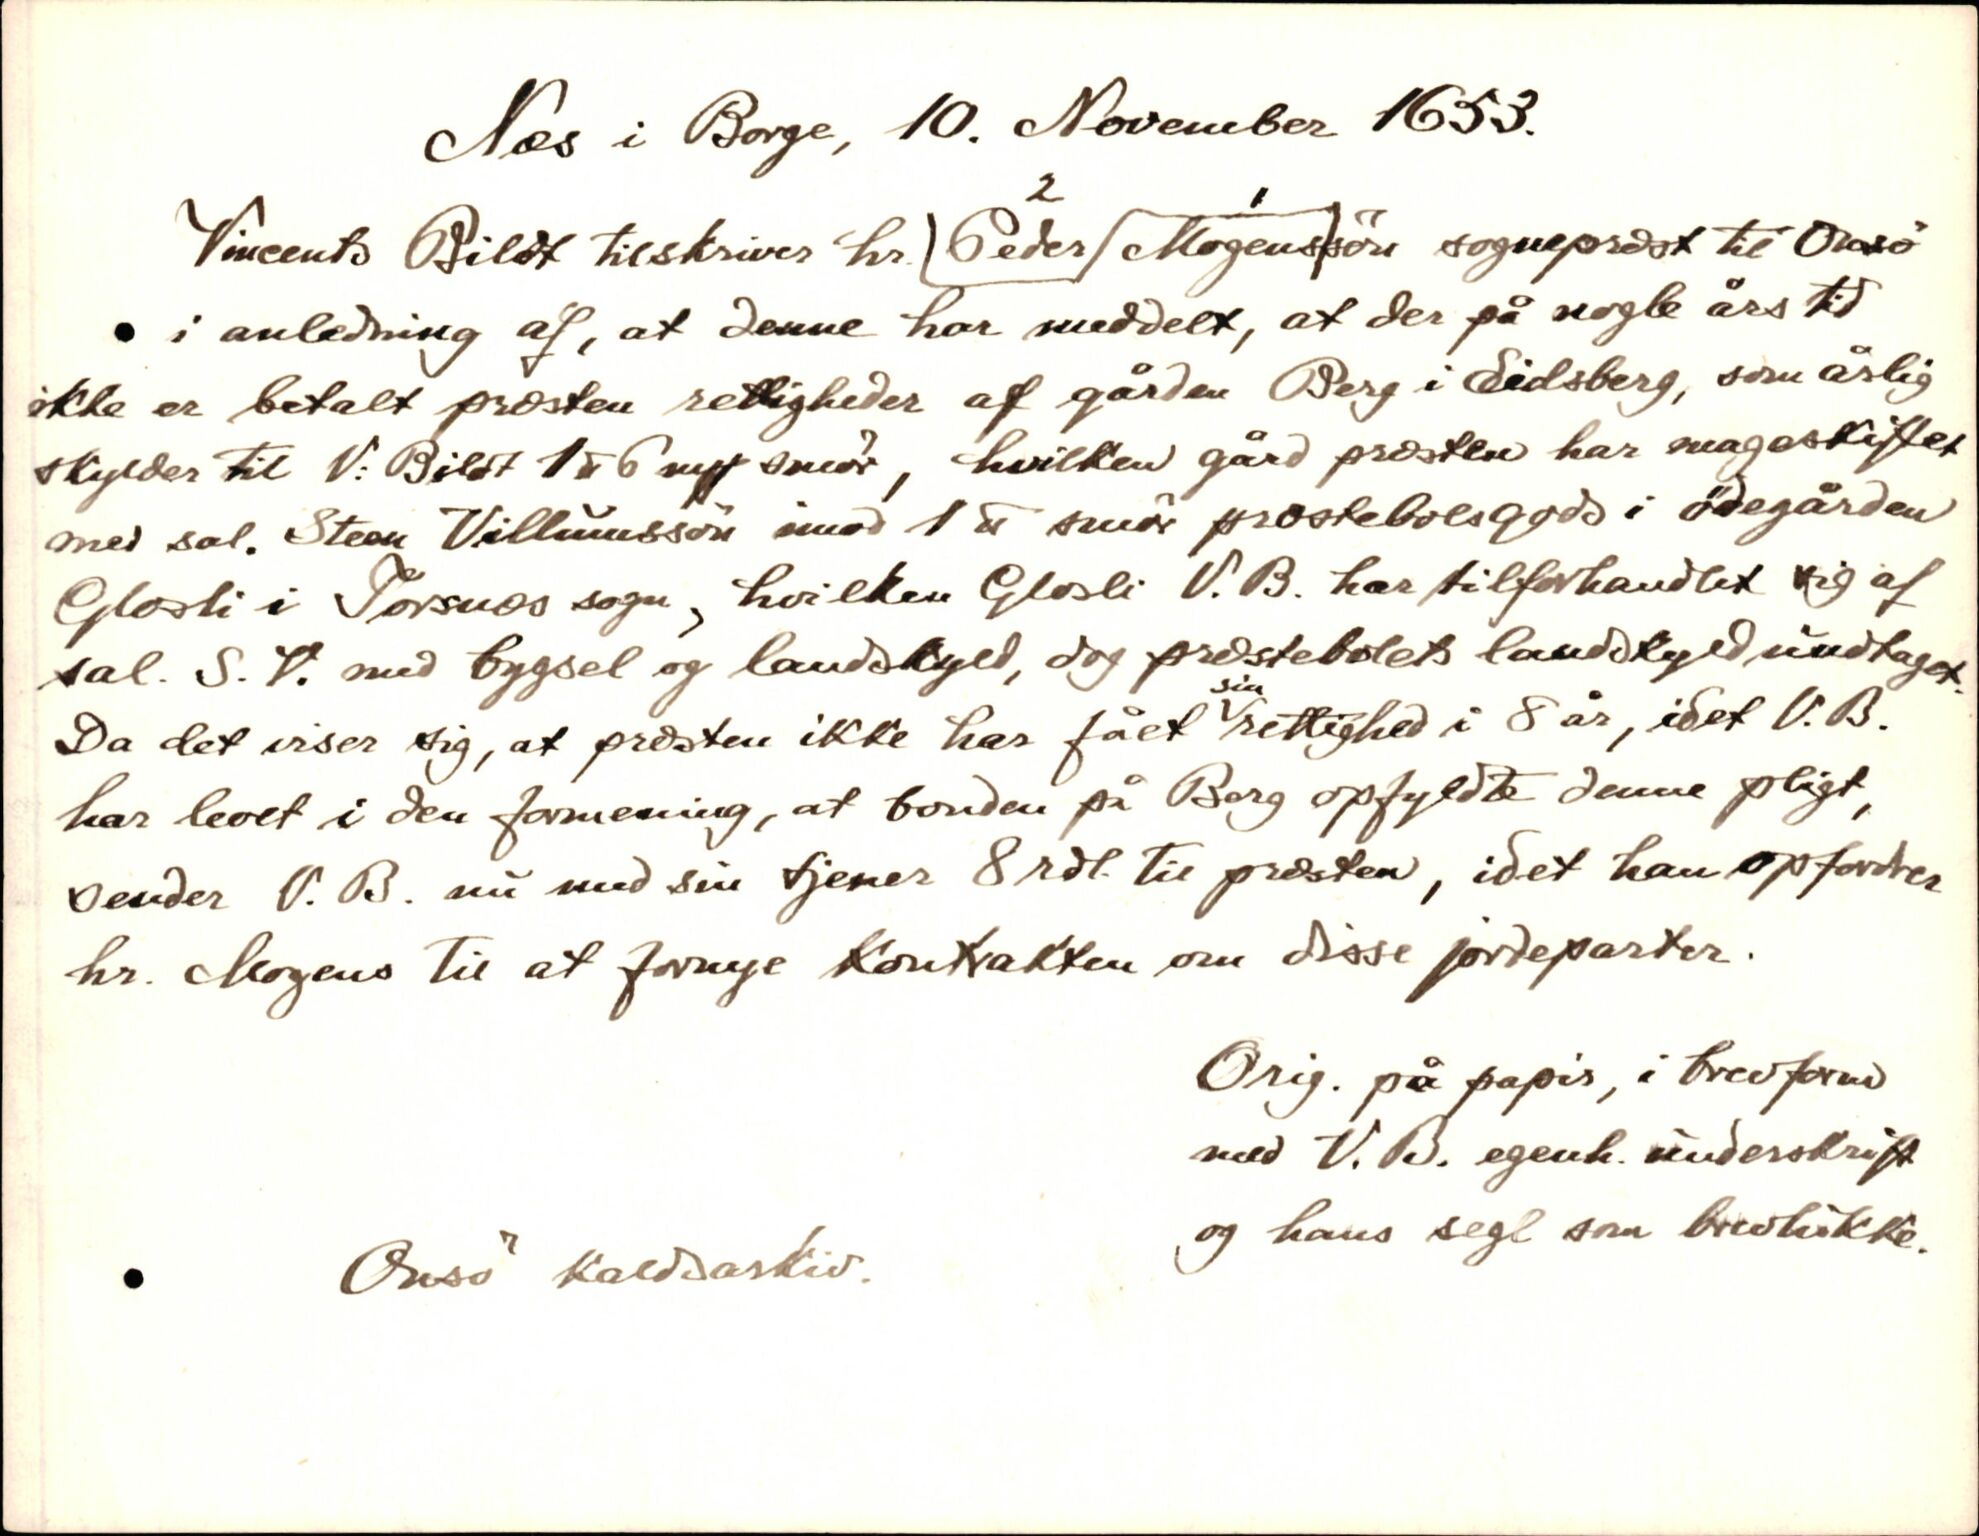 Næs i Borge, 10. November 1653.
2 1
Vincents Bildt tilskriver hr. Peder Mogenssön sognepræst til Onsö
i anledning af, at denne har meddelt, at der på nogle års tid
ikke er betalt præsten rettigheder af gården Berg i Eidsberg, som årlig
skylder til V. Bildt 1 ℔ 6 mrk smör, hvilken gård præsten har mageskiftet
med sal. Steen Villumssön imod 1 ℔ smör præstebolsgods i ödegården
Glosli i Torsnæs sogn, hvilken Glosli V. B. har tilforhandlet sig af
sal. S. V. med bygsel og landskyld, dog præstebolets landskyld undtaget.
Da det viser sig, at præsten ikke har fået sin rettighed i 8 år, idet V. B.
har levet i den formening, at bonden på Berg opfyldte denne pligt,
sender V. B. nu med sin tjener 8 rdl. til præsten, idet han opfordrer
hr. Mogens til at fornye kontrakten om disse jordeparter.
Orig. på papir, i brevform
med V. B. egenh. underskrift
og hans segl som brevlukke.
Onsö kaldsarkiv.